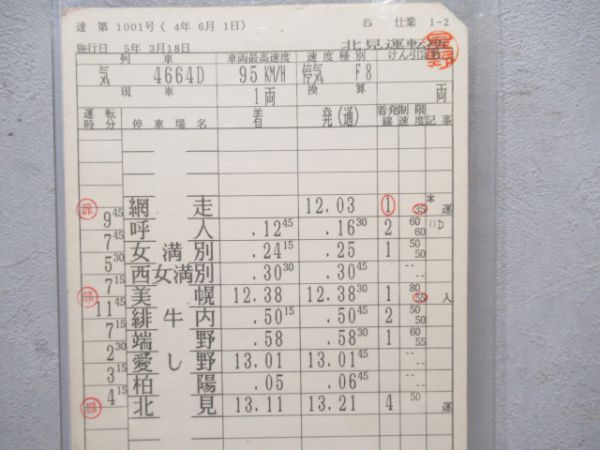 達 第 1001号 ( 4年 6月 1日) 5 仕業 1-2
施行日 5年 3月18日 北見運転所
列車 車両最高速度 速度種別 けん引定数
気 4664D 95KM/H 停気 F8
現車 1両 換算 両
運転時分 停車場名 着 発(通) 着発線 制限速度 記事
網走 12.03 1 35 * 運
9 45
呼人 .12 45 .16 30 2 60 60 11D
7 45
女満別 .24 15 .25 1 50 50
5 30
西女満別 .30 30 .30 45
7 15
美幌 12.38 12.38 30 1 80 55 人
11 45
緋牛内 .50 15 .50 45 2 50 50
7 15
端野 .58 .58 30 1 60 55
2 30
愛し野 13.01 13.01 45
3 15
柏陽 .05 .06 45
4 15
北見 13.11 13.21 4 50 運